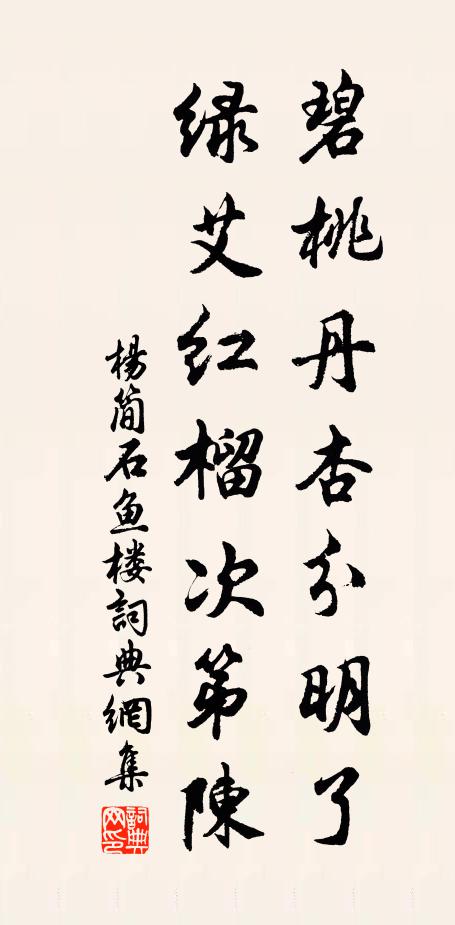 碧桃丹杏分明了
绿艾红榴次第陳
楊简石鱼楼詞典網集
詞典网印